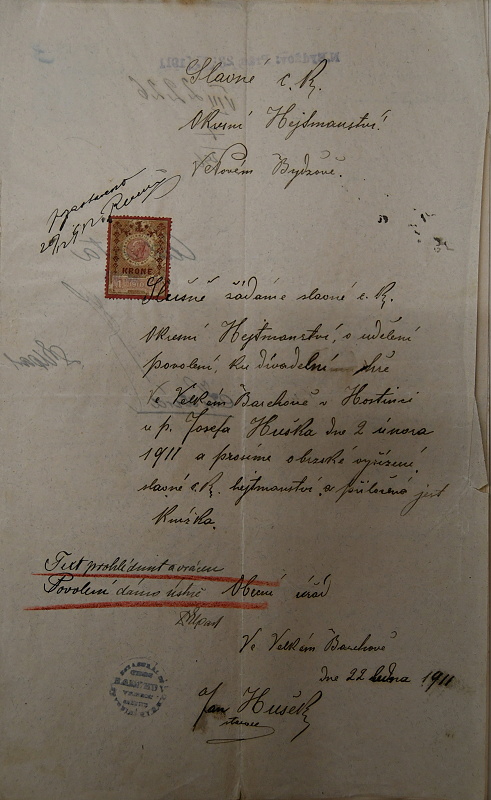 Slavné c. k.
Okresní Hejtmanství!
V Novém Bydžově.
KRONE
Slušně žádáme slavné c. k.
Okresní Hejtmanství, o udělení
povolení, ku divadelní hře
Ve Velkém Barchově v Hostinci
u p. Josefa Huška dne 2 února
1911 a prosíme o brzské vyřízení
slavné c. k. hejtmanství. a přiložená jest
knížka.
Text prohlédnut a vrácen
Povolení dáno ústně
Obecní úřad
Ve Velkém Barchově
dne 22 ledna 1911
Jan Hušek
starosta